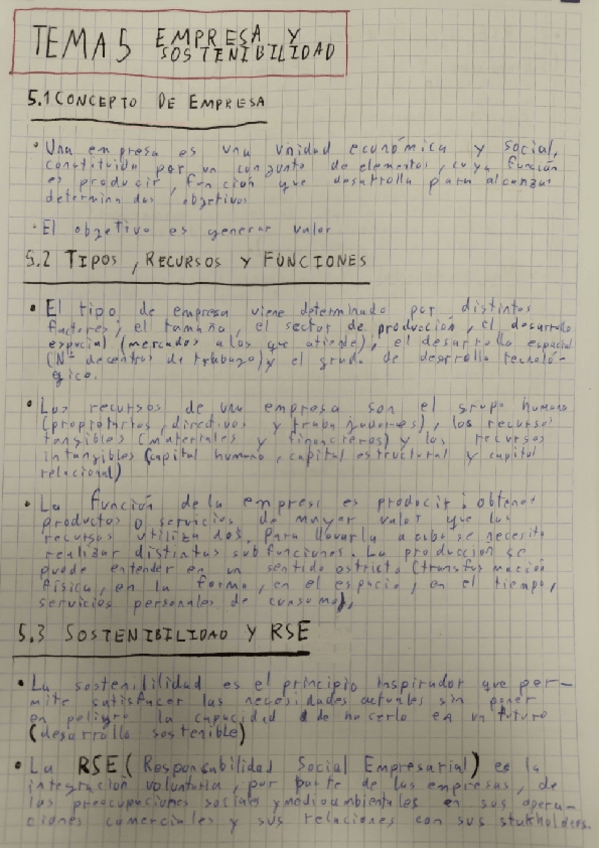 TEMA 5 EMPRESA Y
SOSTENIBILIDAD
5.1 CONCEPTO DE EMPRESA
• Una empresa es una unidad económica y social,
constituida por un conjunto de elementos, cuya función
es producir, función que desarrolla para alcanzar
determinados objetivos
• El objetivo es generar valor
5.2 TIPOS, RECURSOS Y FUNCIONES
• El tipo de empresa viene determinado por distintos
factores; el tamaño, el sector de producción, el desarrollo
espacial (mercados a los que atiende), el desarrollo espacial
(Nº de centros de trabajo) y el grado de desarrollo tecnoló-
gico.
• Los recursos de una empresa son el grupo humano
(propietarios, directivos y trabajadores), los recursos
tangibles (materiales y financieros) y los recursos
intangibles (capital humano, capital estructural y capital
relacional)
• La función de la empresa es producir: obtener
productos o servicios de mayor valor que los
recursos utilizados. Para llevarla a cabo se necesita
realizar distintas subfunciones. La producción se
puede entender en un sentido estricto (transformación
física, en la forma, en el espacio, en el tiempo,
servicios personales de consumo).
5.3 SOSTENIBILIDAD Y RSE
• La sostenibilidad es el principio inspirador que per-
mite satisfacer las necesidades actuales sin poner
en peligro la capacidad de hacerlo en un futuro
(desarrollo sostenible)
• La RSE (Responsabilidad Social Empresarial) es la
integración voluntaria, por parte de las empresas, de
las preocupaciones sociales y medioambientales en sus opera-
ciones comerciales y sus relaciones con sus